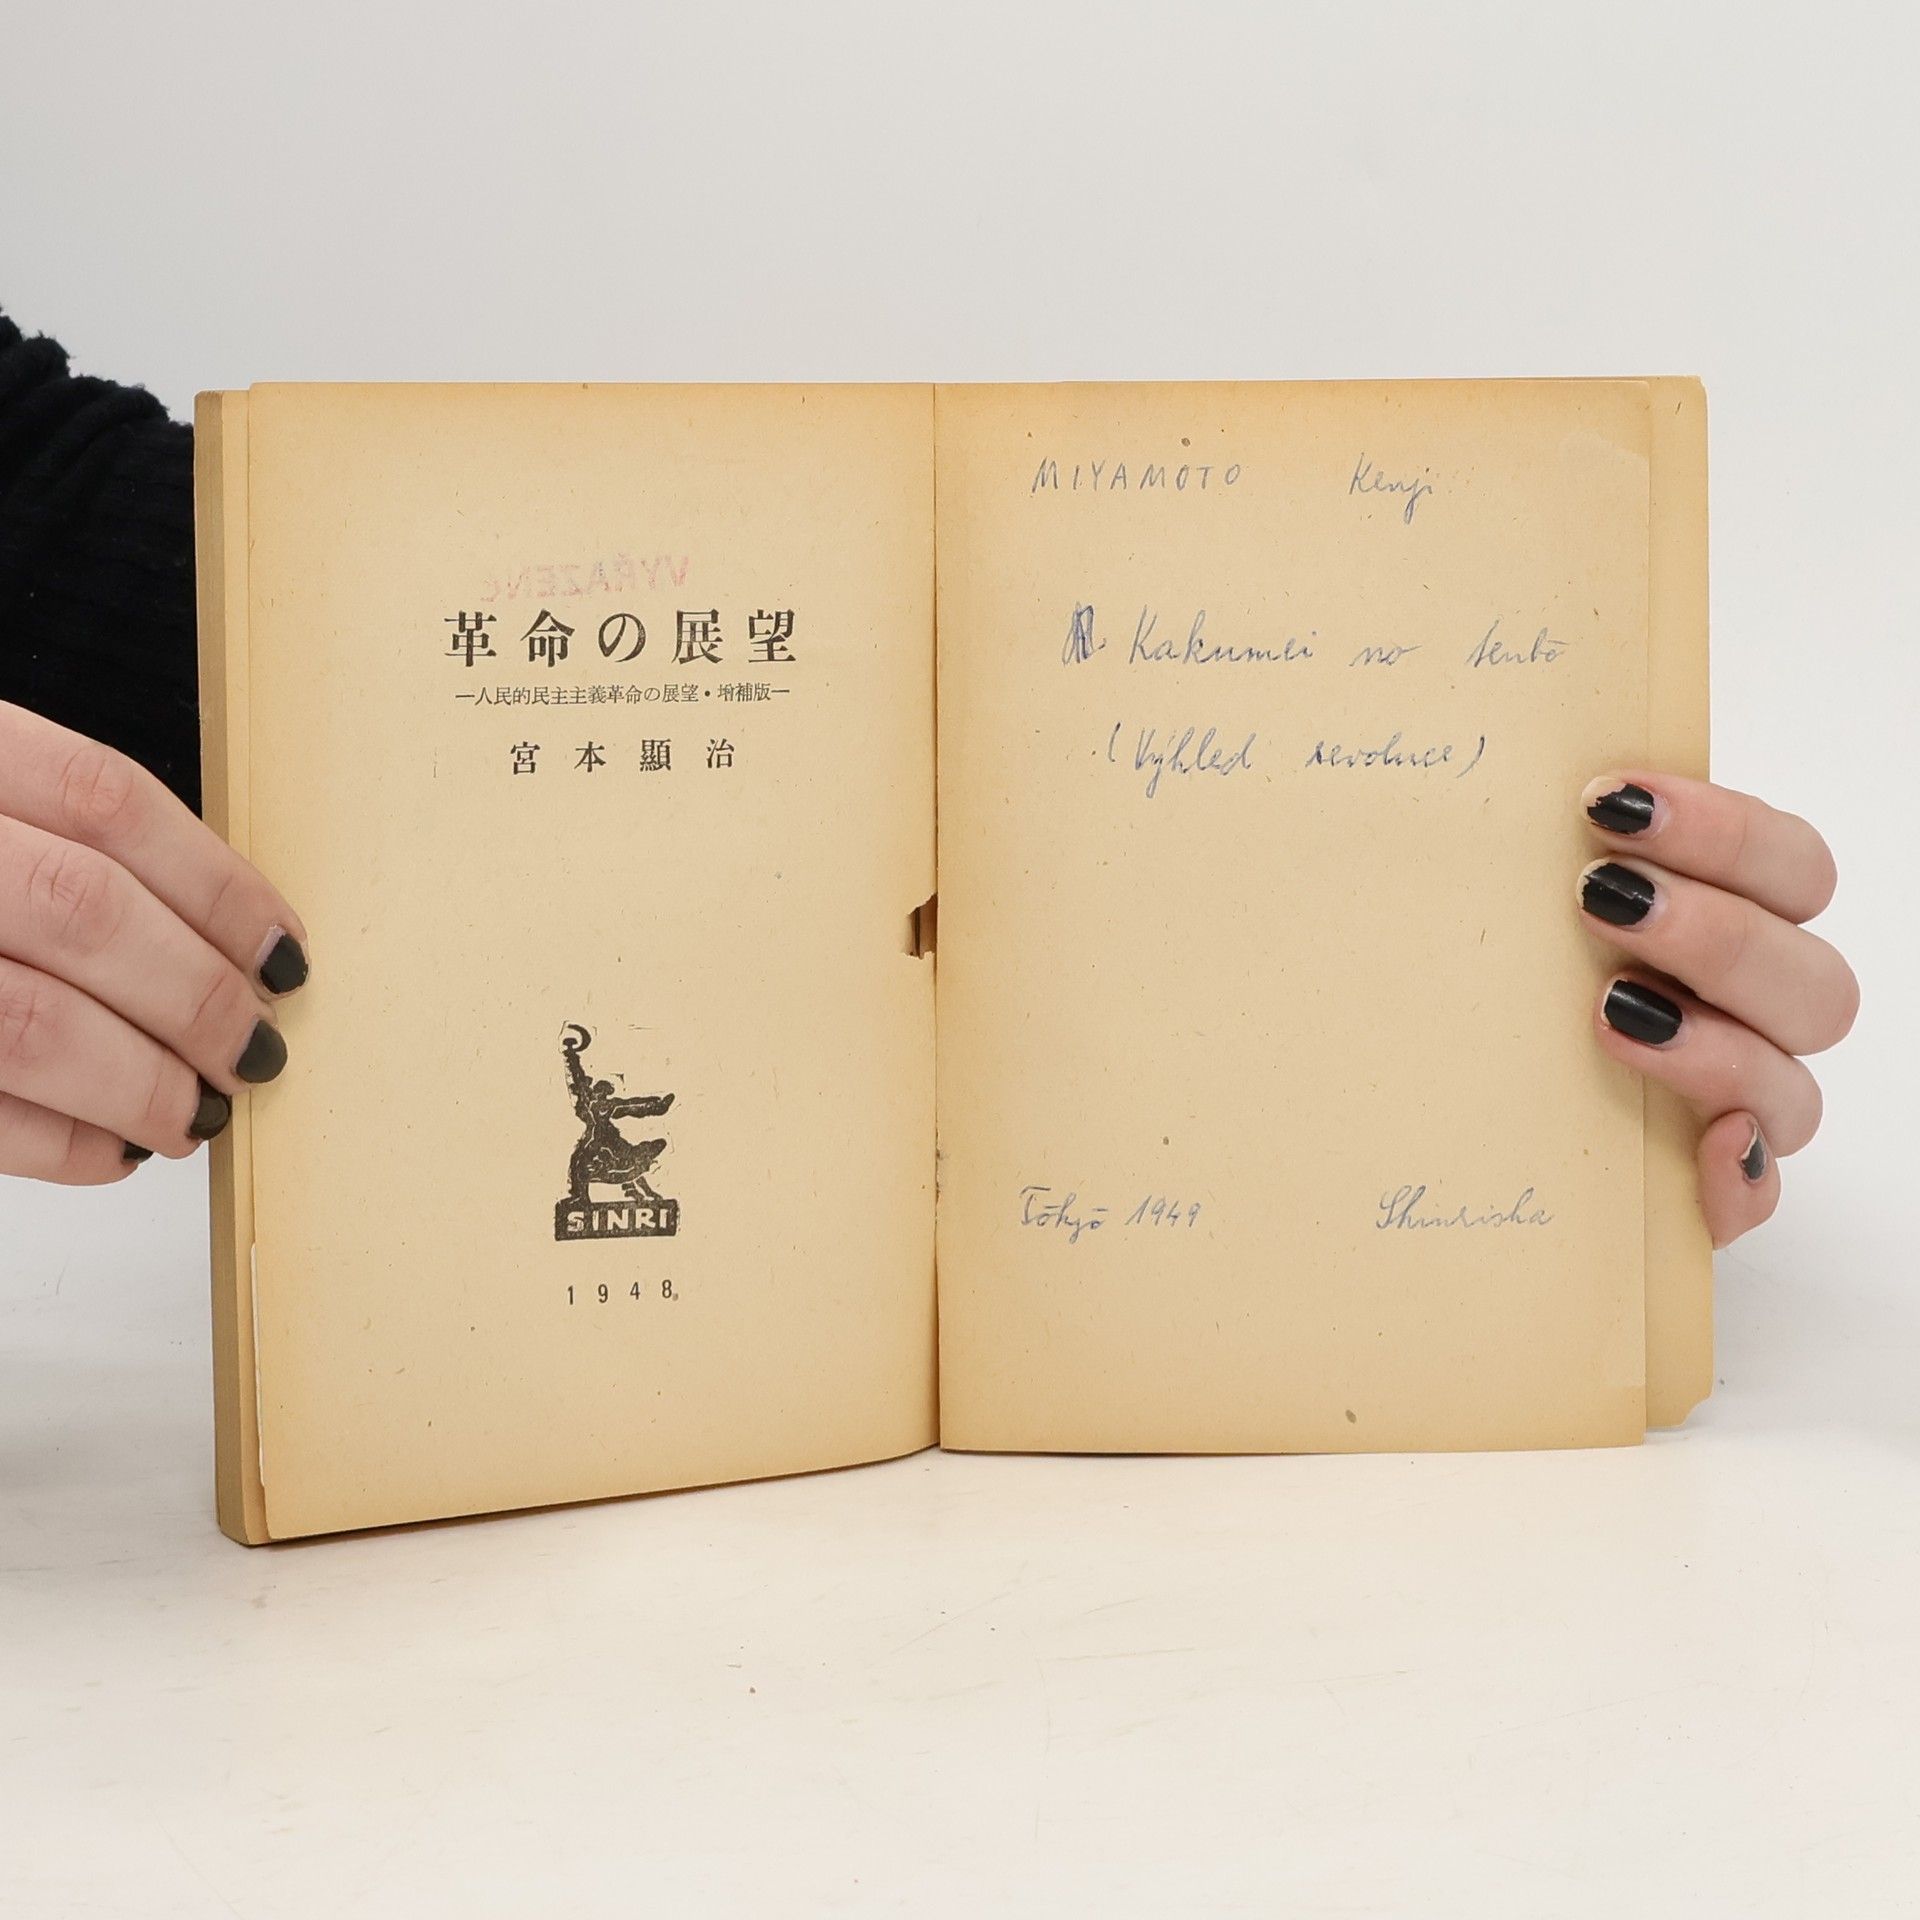 VYŘAZENO
革命の展望
—人民的民主主義革命の展望・增補版—
宮本顯治
SINRI
1948
MIYAMOTO Kenji
Kakumei no tenbō
(Výhled revoluce)
Tōkyō 1949 Shinrisha